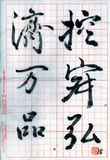 控寂弘
濟万品